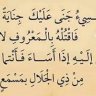 مسيءٌ جَنَى عَلَيْكَ جِنَايَةً
فَاقْتُلْهُ بِالْمَعْرُوفِ لَا
إِلَيْهِ إِذَا أَسَاءَ فَأَنْتَمَا
مِنْ ذِي الْجَلَالِ بِمَسْمَعٍ